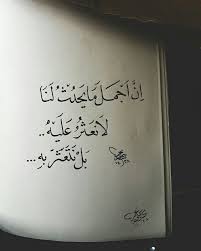 إِنَّ أَجْمَلَ مَا يَحْدُثُ لَنَا
لَا نَعْثُرُ عَلَيْهِ ..
بَلْ نَتَعَثَّرُ بِهِ ...